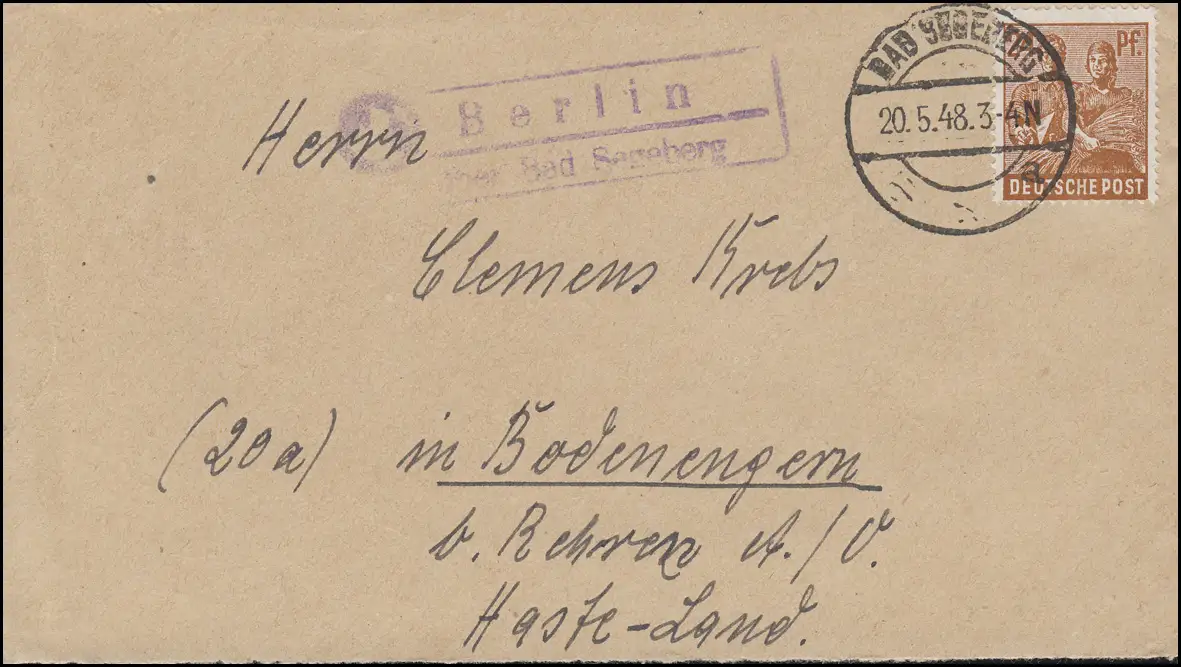 Berlin
über Bad Segeberg
BAD SEGEBERG
20.5.48.3-4N
Pf.
DEUTSCHE POST
Herrn
Clemens Krebs
(20a) in Bodenengern
b. Rehren A./O.
Haste-Land.